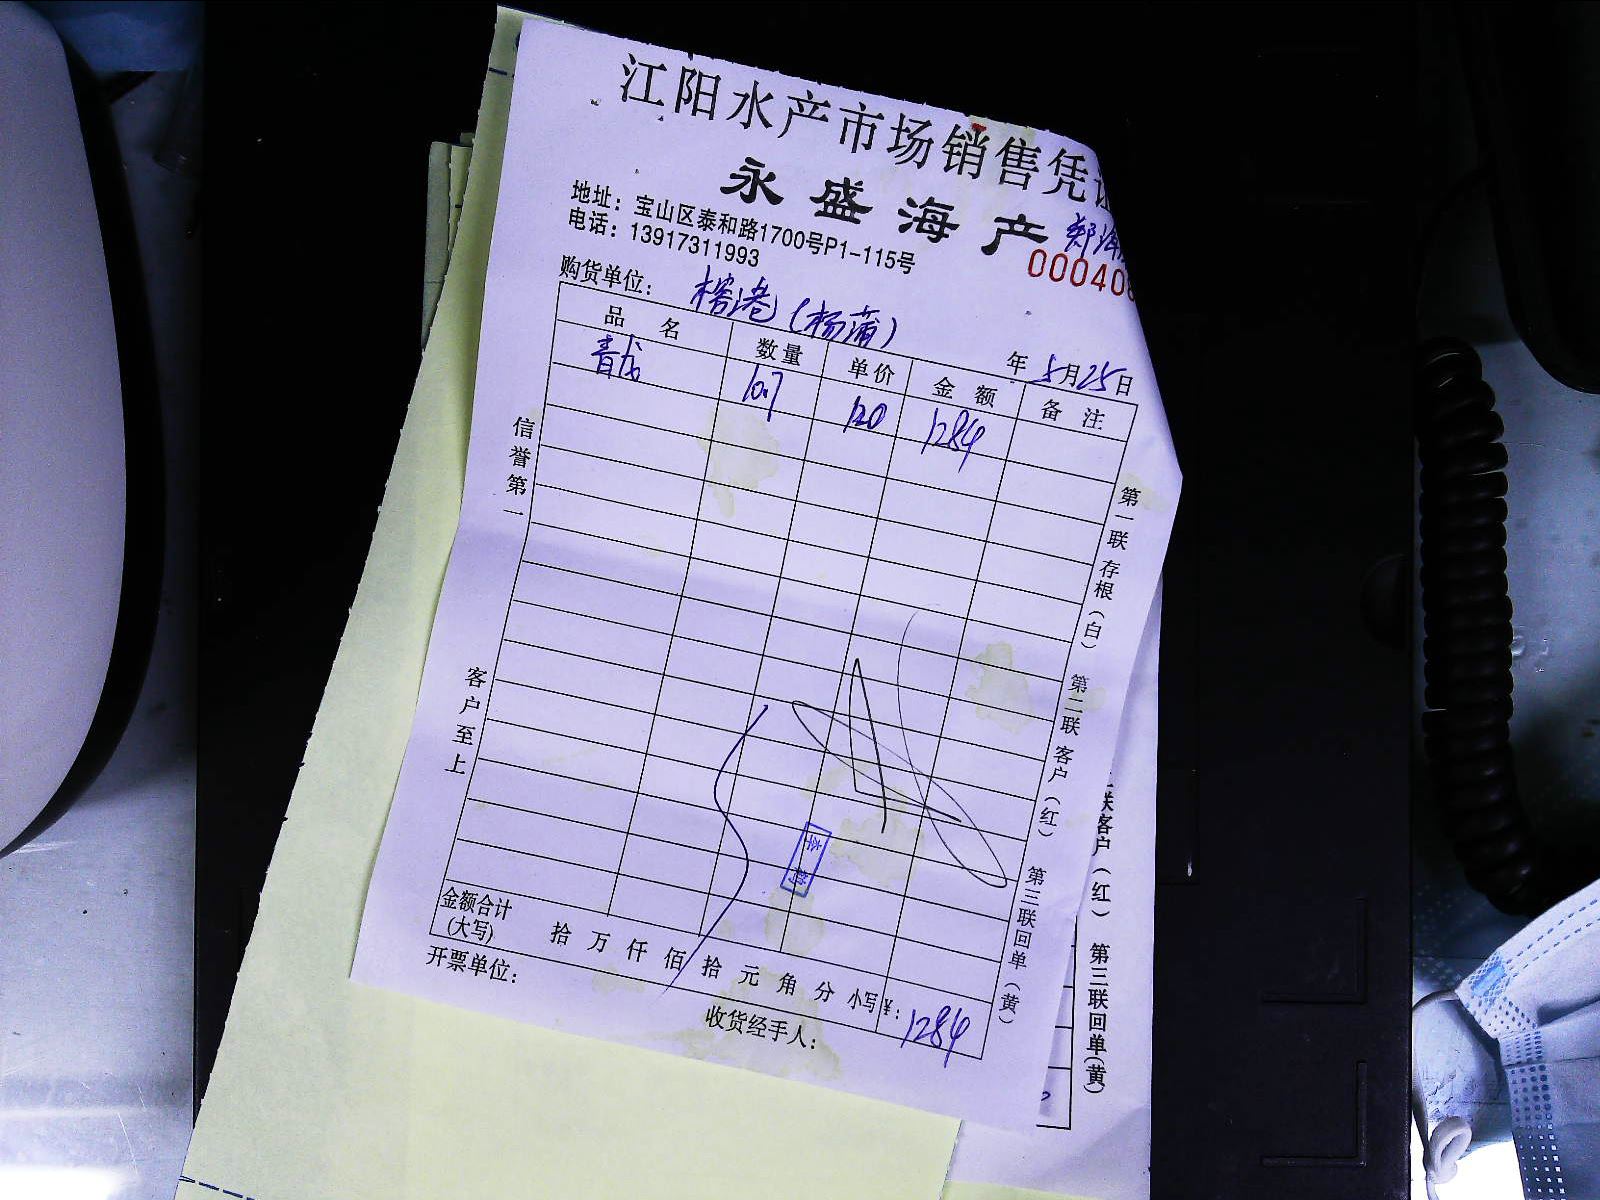 江阳水产市场销售凭
永盛海产
地址：宝山区泰和路1700号P1-115号
电话：13917311993
00040
购货单位：榕港（杨蒲）
年 5月25日
品名 数量 单价 金额 备注
青龙 10.7 120 1284
信誉第一
客户至上
第一联存根（白） 第二联客户（红） 第三联回单（黄）
金额合计
(大写) 拾 万 仟 佰 拾 元 角 分 小写¥：1284
开票单位：
收货经手人：
联客户（红） 第三联回单（黄）